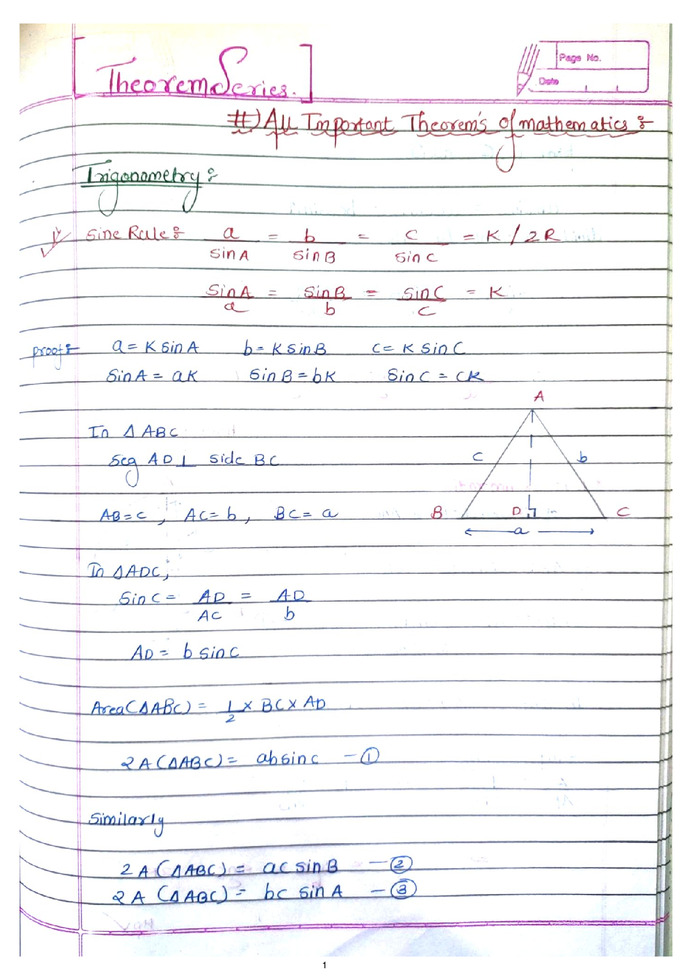 Page No.
Date
Theorem Series.
#) All Important Theorem's of mathematics :-
Trigonometry :-
1) Sine Rule :- a/sinA = b/sinB = c/sinC = K / 2R
sinA/a = sinB/b = sinC/c = K
proof :- a = K sinA b = K sinB c = K sinC
sinA = aK sinB = bK sinC = cK
In Δ ABC
seg AD ⊥ side BC
AB = c, AC = b, BC = a
A
c b
B D C
a
In ΔADC,
sinC = AD/AC = AD/b
AD = b sinC
Area(ΔABC) = 1/2 × BC × AD
2A(ΔABC) = ab sinc — ①
Similarly
2A(ΔABC) = ac sinB — ②
2A(ΔABC) = bc sinA — ③
1